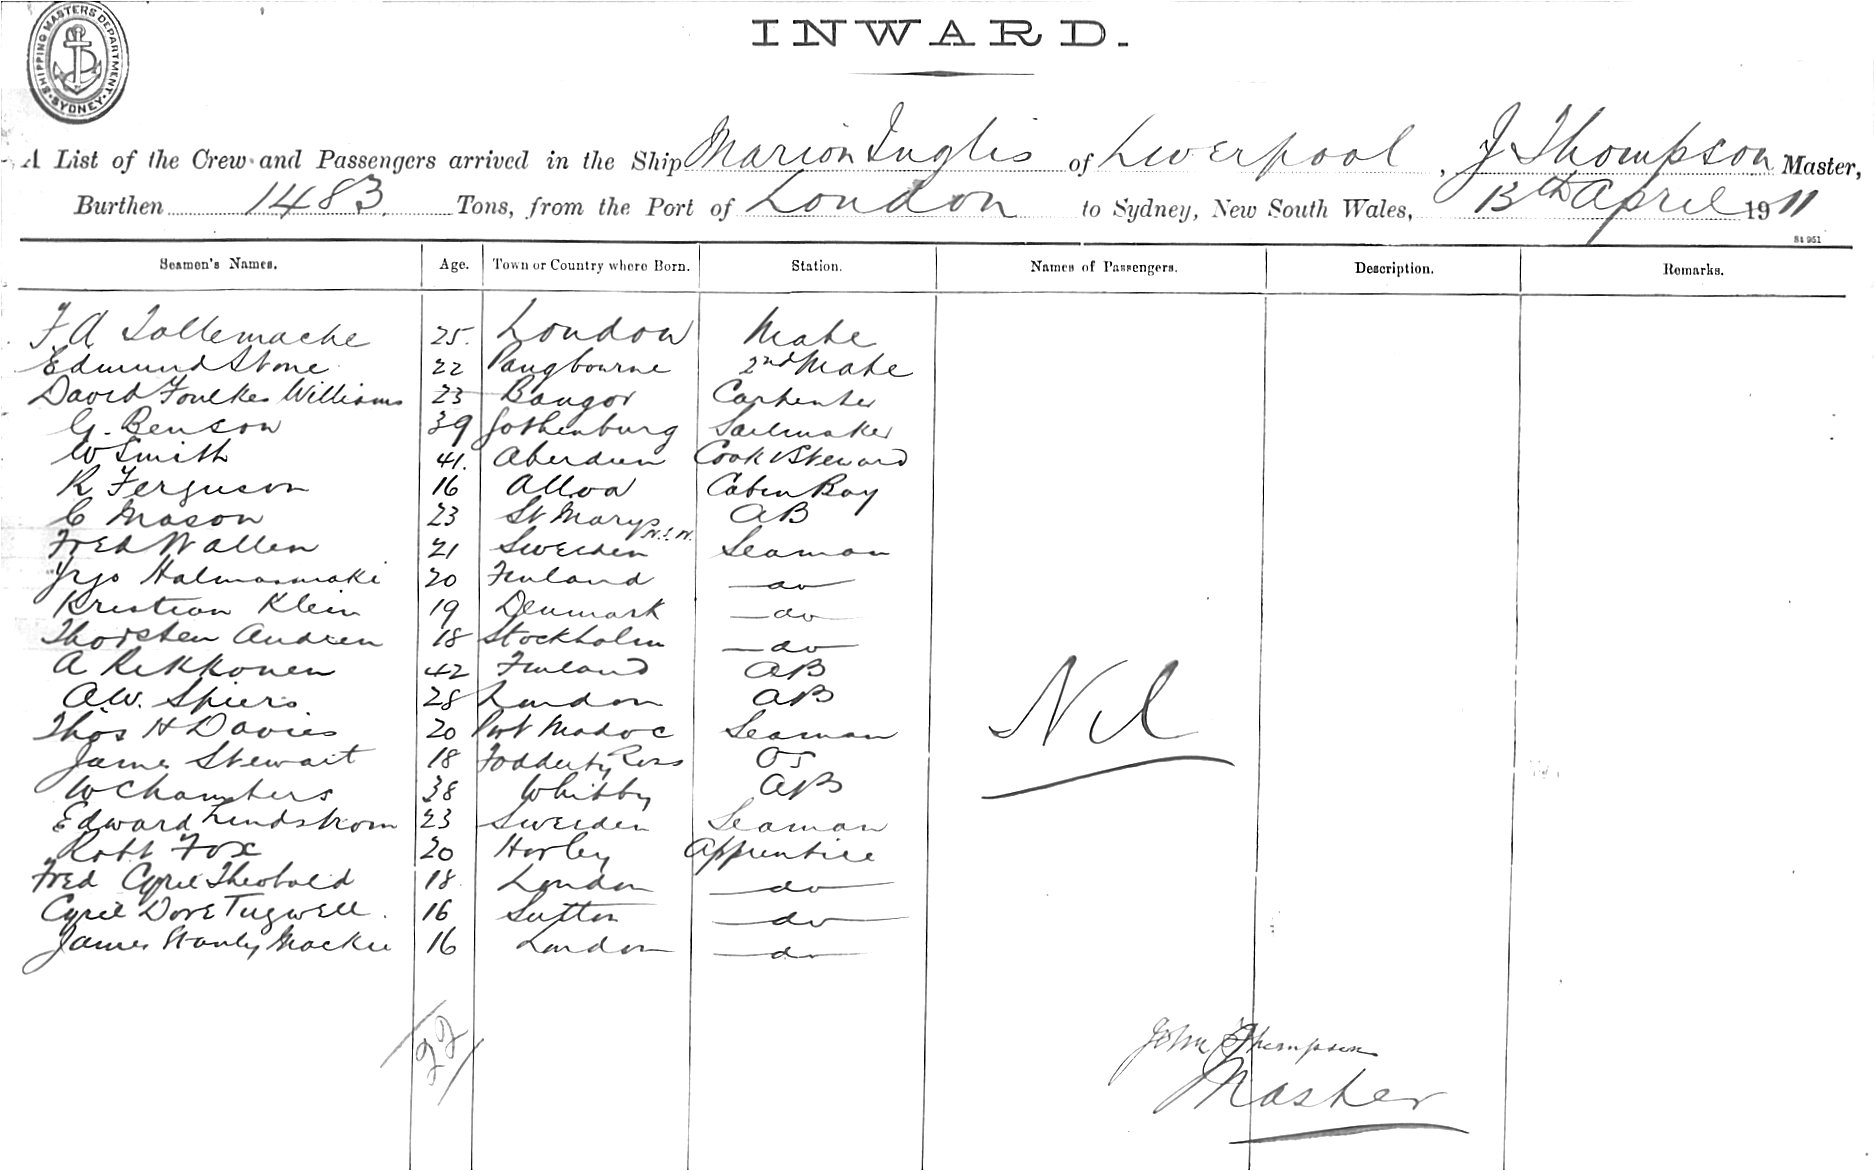 SHIPPING MASTERS DEPARTMENT
SYDNEY
INWARD.
A List of the Crew and Passengers arrived in the Ship Marion Inglis of Liverpool, J Thompson Master,
Burthen 1483 Tons, from the Port of London to Sydney, New South Wales, 13th April 1911
St 951
Seamen's Names. Age. Town or Country where Born. Station. Names of Passengers. Description. Remarks.
F A Tollemache 25. London Mate
Edmund Stone 22 Pangbourne 2nd Mate
David Foulkes Williams 23 Bangor Carpenter
G. Benson 39 Gothenburg Sailmaker
W Smith 41. Aberdeen Cook & Steward
R Ferguson 16 Alloa Cabin Boy
C Mason 23 St Marys N.S.W. AB
Fred Wallen 21 Sweden Seaman
Yrjo Halmasmaki 20 Finland do
Kristian Klein 19 Denmark do
Thorsten Andren 18 Stockholm do
A Rekkonen 42 Finland AB
A.W. Spiers 28 London AB
Thos H Davies 20 Port Madoc Seaman
James Stewart 18 Fodderty Ross OS
W Chambers 38 Whitby AB
Edward Lindstrom 23 Sweden Seaman
Robt Fox 20 Horley Apprentice
Fred Cyril Theobald 18 London do
Cyril Dove Tugwell. 16 Sutton do
James Stanley Mackie 16 London do
Nil
22
John Thompson
Master